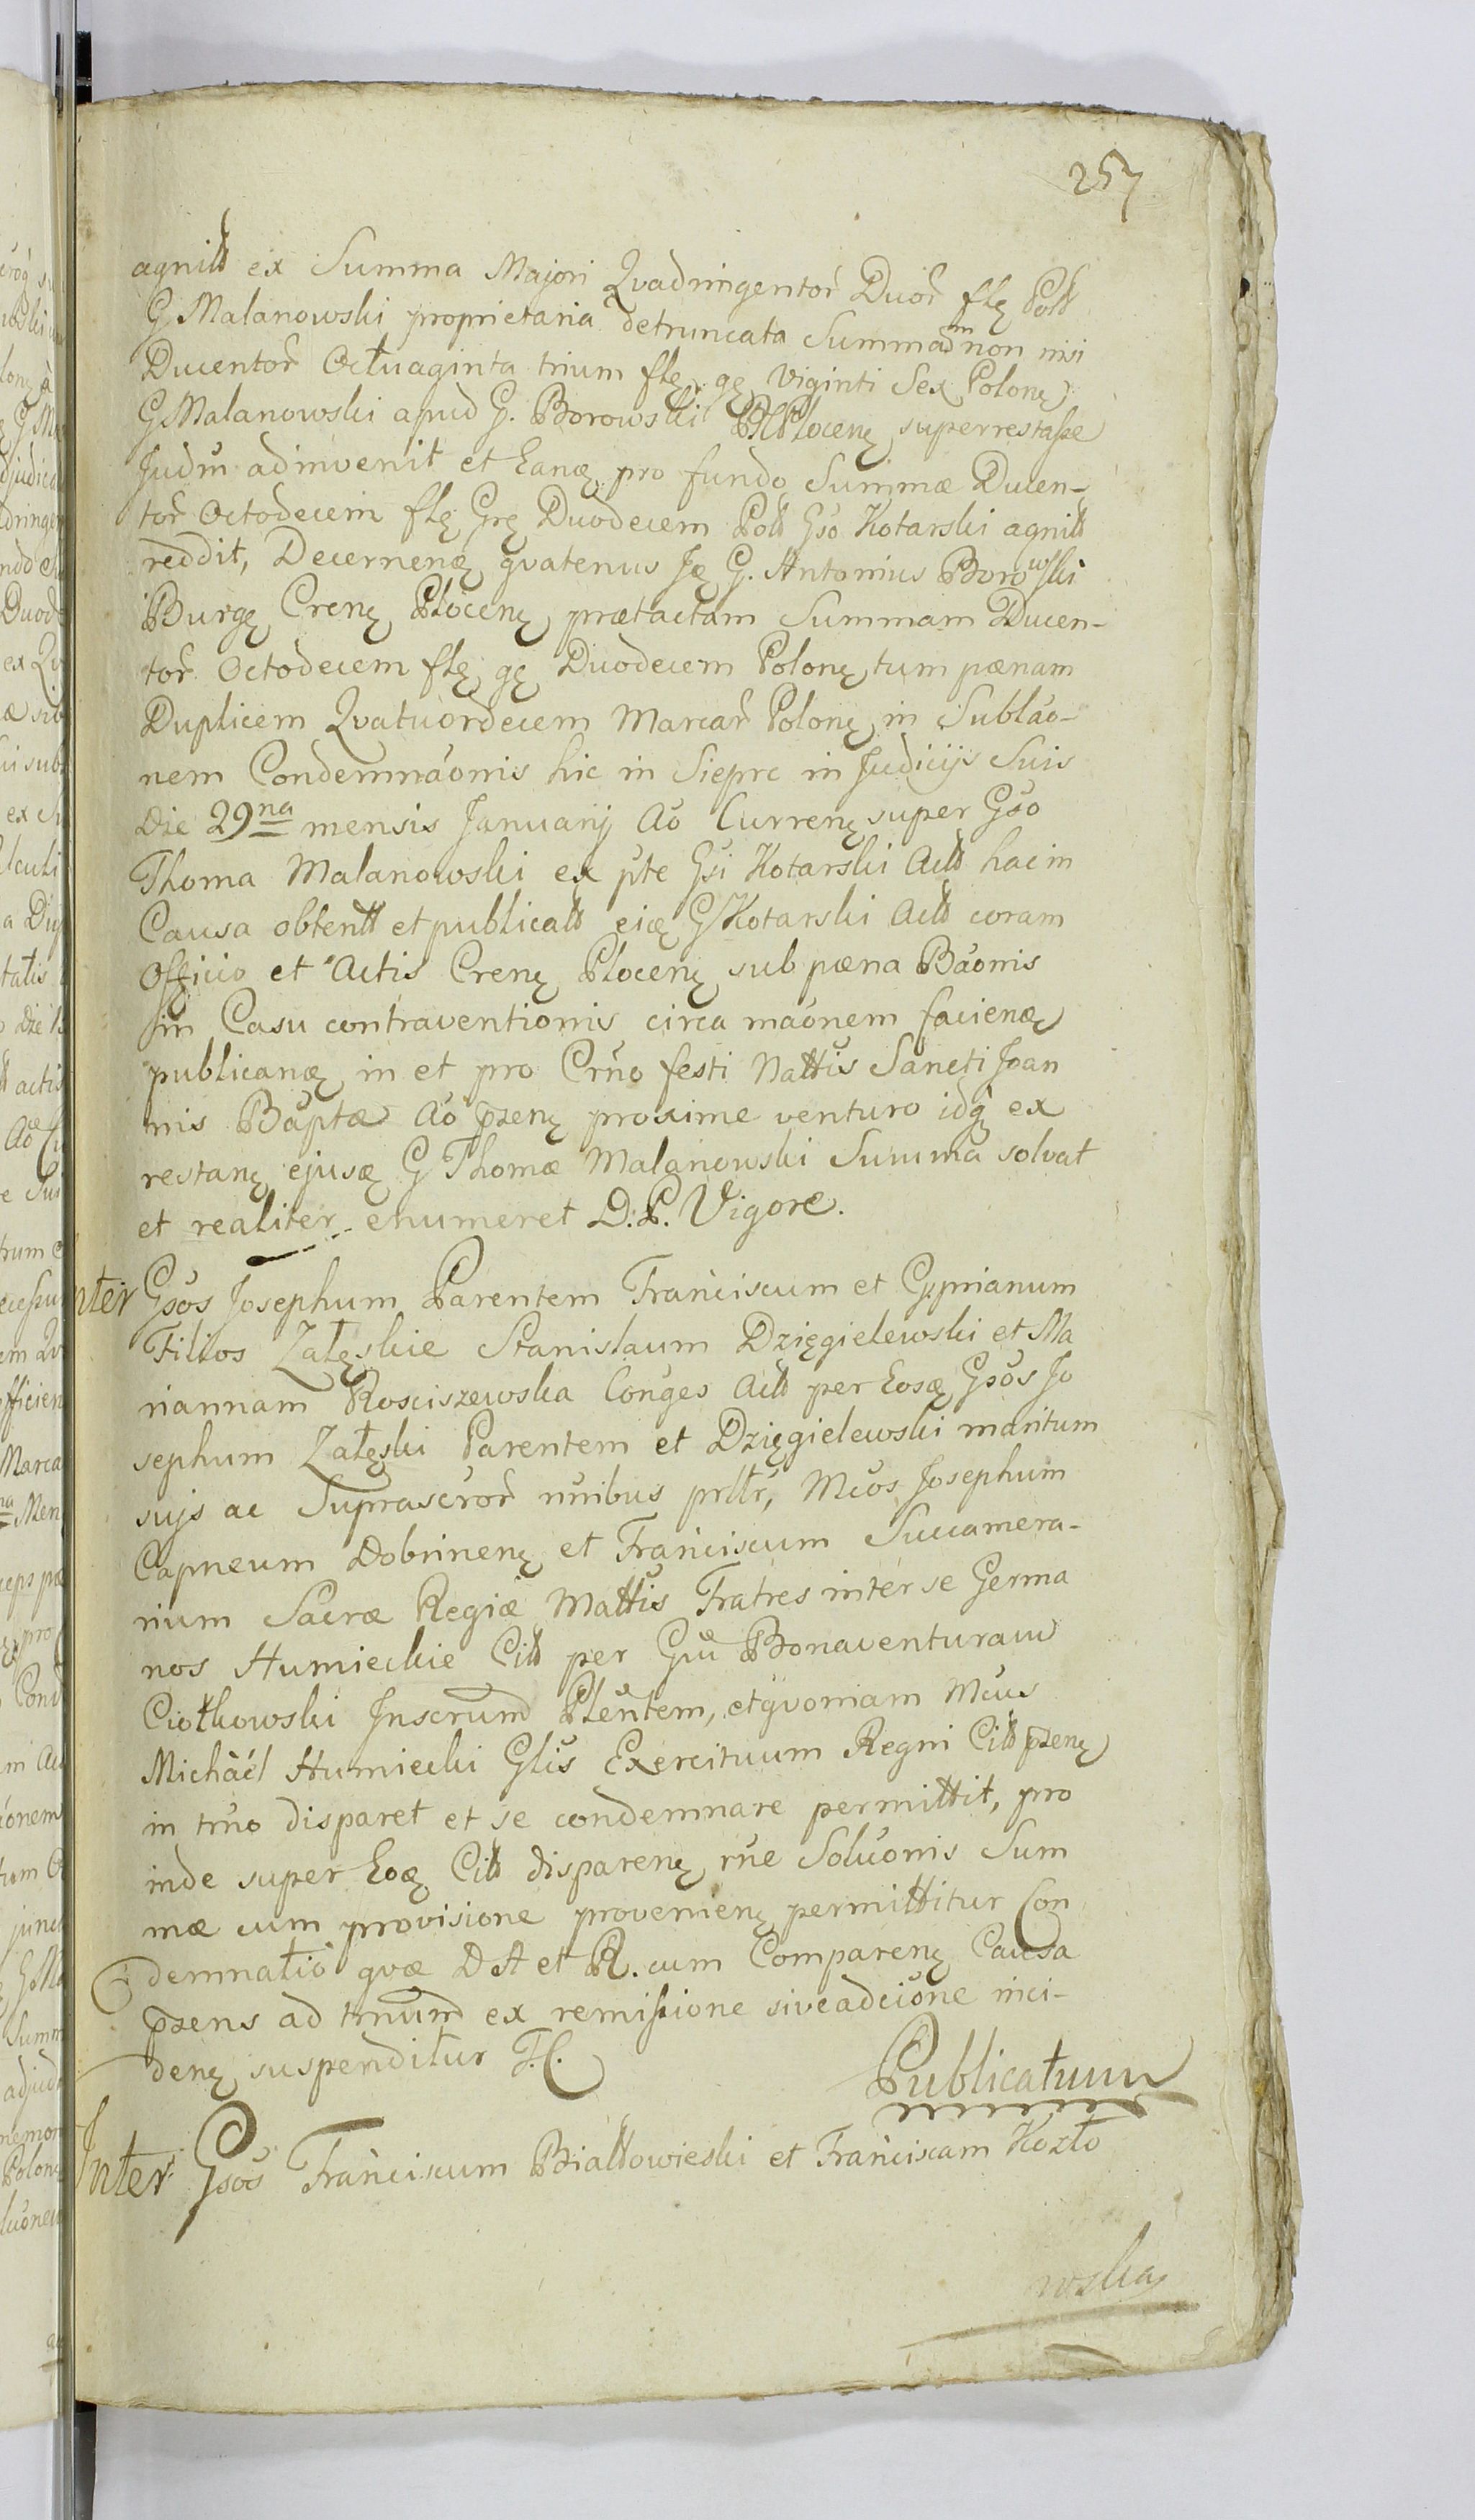 257
agnitt ex Summa Majori Qvadringentor̃ Duor̃ flę Poll
G Malanowski proprietaria detruncata Summam non nisi
Ducentor̃ Octuaginta trium flę gę Viginti Sex Polonę
G Malanowski apud G. Borowski Plocenę superrestasse
Judm̃ adinvenit et Eanę pro fundo Summæ Ducen-
tor̃ Octodecem flę Grę Duodecem Poll Gso Kotarski agnitt
reddit, Decernenę qvatenus Ję G. Antonius Borowski
Burgę Crenę Plocenę prætactam Summam Ducen-
tor̃ Octodecem flę gę Duodecem Polonę tum pænam
Duplicem Qvatuordecem Marcar̃ Polonę in Sublao-
nem Condemnaonis hic in Sieprc in Judicijs Suis
Die 29na mensis Januarij Ao Currenę super Gso
Thoma Malanowski ex pte Gsi Kotarski Actt hac in
Causa obtentt et publicatt eię G Kotarski Actt coram
Officio et Actis Crenę Plocenę sub pæna Baonis
in Casu contraventionis circa maonem facienę
publicanę in et pro Crno festi Nattis Sancti Joan
nis Baptæ Ao przenę proxime venturo idę ex
restanę ejusę G Thomæ Malanowski Summa solvat
et realiter enumeret D. P. Vigore.
nter Gsos Josephum Parentem Franciscum et Cyprianum
Filios Załęskie Stanislaum Dzięgielewski et Ma
riannam Rosciszewska Conges Actt per Eosę Gsos Jo
sephum Załęski Parentem et Dzięgielewski maritum
suis ac Suprascror̃ nnibus prltr, Mcos Josephum
Capneum Dobrinenę et Franciscum Succamera-
rium Sacræ Regiæ Mattis Fratres inter se Germa
nos Humieckie Citt per Gm Bonaventuram
Ciołkowski Inscrum Plentem, et qvoniam Mcus
Michaël Humiecki Glis Exercituum Regni Citt przenę
in trno disparet et se condemnare permittit, pro
inde super Eoę Citt disparenę rne Soluonis Sum
mæ cum provisione provenienę permittitur Con
demnatio qvæ D A et R. cum Comparenę Causa
przens ad trnum ex remissione sive adcione inci-
denę suspenditur T. C.
Publicatum
Inter Gsos Franciscum Białłowieski et Franciscam Kozło
wska